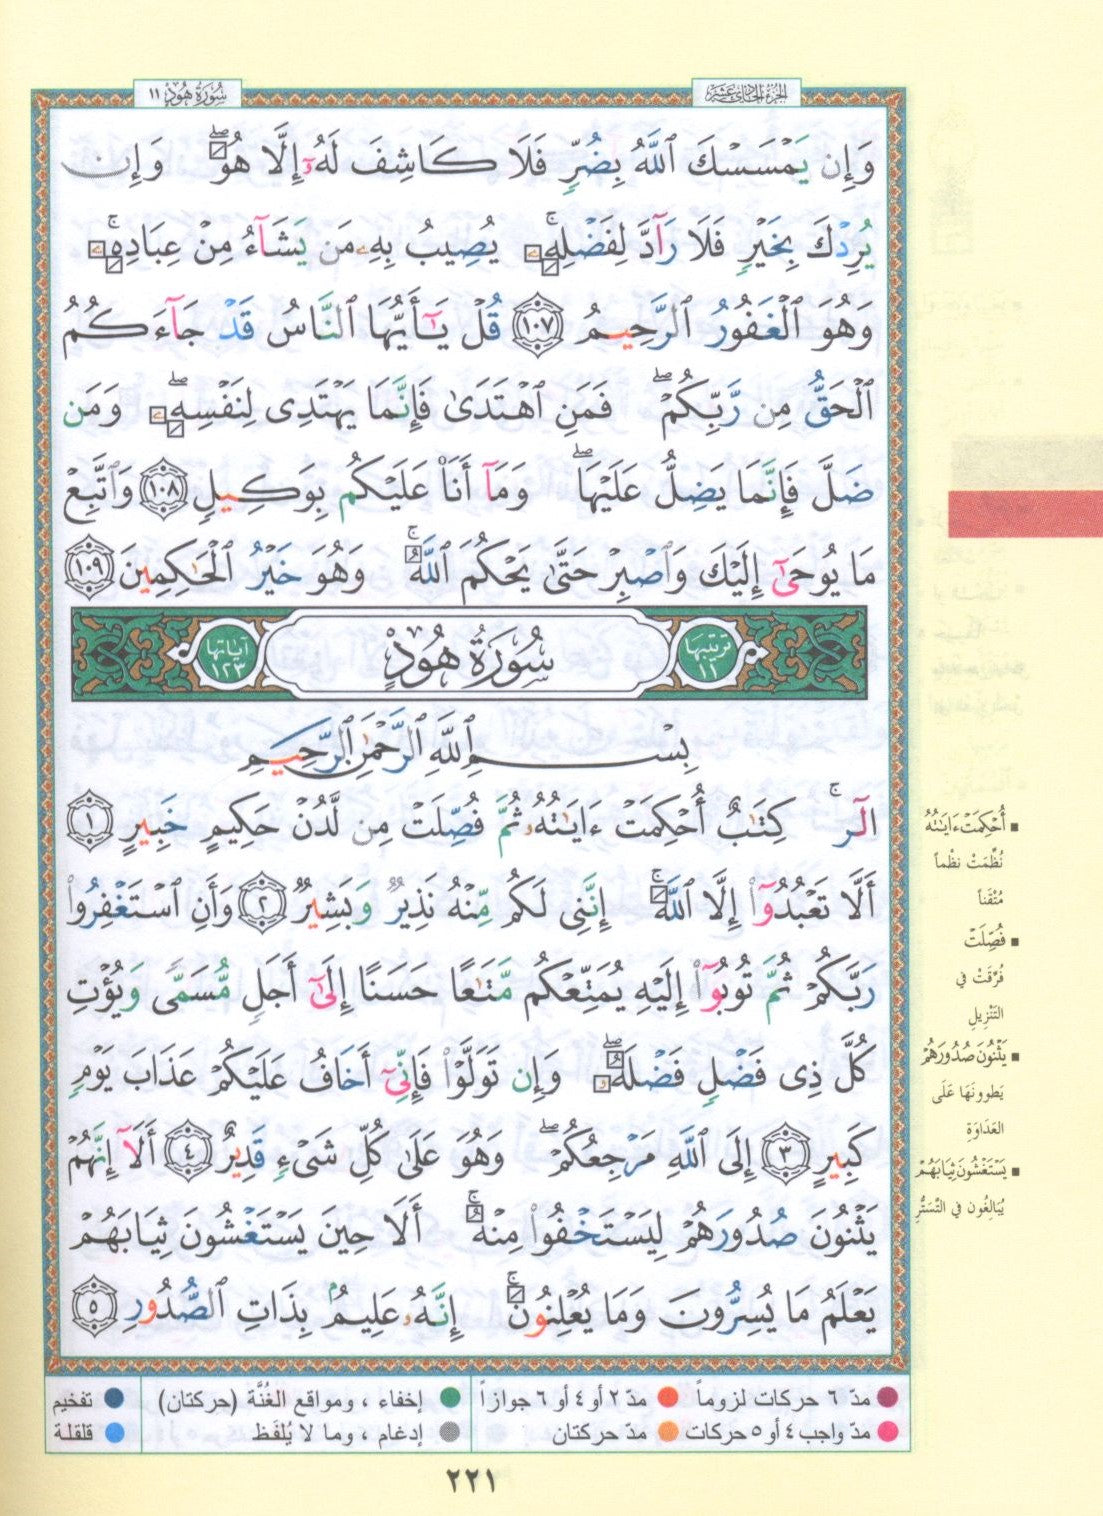 الجزء الحادي عشر
سُورَةُ هُودٍ ١١
وَإِن يَمْسَسْكَ ٱللَّهُ بِضُرٍّ فَلَا كَاشِفَ لَهُۥٓ إِلَّا هُوَۖ وَإِن
يُرِدْكَ بِخَيْرٍ فَلَا رَآدَّ لِفَضْلِهِۦۚ يُصِيبُ بِهِۦ مَن يَشَآءُ مِنْ عِبَادِهِۦۚ
وَهُوَ ٱلْغَفُورُ ٱلرَّحِيمُ ١٠٧ قُلْ يَـٰٓأَيُّهَا ٱلنَّاسُ قَدْ جَآءَكُمُ
ٱلْحَقُّ مِن رَّبِّكُمْۖ فَمَنِ ٱهْتَدَىٰ فَإِنَّمَا يَهْتَدِى لِنَفْسِهِۦۖ وَمَن
ضَلَّ فَإِنَّمَا يَضِلُّ عَلَيْهَاۖ وَمَآ أَنَا۠ عَلَيْكُم بِوَكِيلٍ ١٠٨ وَٱتَّبِعْ
مَا يُوحَىٰٓ إِلَيْكَ وَٱصْبِرْ حَتَّىٰ يَحْكُمَ ٱللَّهُۚ وَهُوَ خَيْرُ ٱلْحَـٰكِمِينَ ١٠٩
ترتيبها ١١
سُورَةُ هُودٍ
آياتها ١٢٣
بِسْمِ ٱللَّهِ ٱلرَّحْمَـٰنِ ٱلرَّحِيمِ
الٓرۚ كِتَـٰبٌ أُحْكِمَتْ ءَايَـٰتُهُۥ ثُمَّ فُصِّلَتْ مِن لَّدُنْ حَكِيمٍ خَبِيرٍ ١
أَلَّا تَعْبُدُوٓا۟ إِلَّا ٱللَّهَۚ إِنَّنِى لَكُم مِّنْهُ نَذِيرٌ وَبَشِيرٌ ٢ وَأَنِ ٱسْتَغْفِرُوا۟
رَبَّكُمْ ثُمَّ تُوبُوٓا۟ إِلَيْهِ يُمَتِّعْكُم مَّتَـٰعًا حَسَنًا إِلَىٰٓ أَجَلٍ مُّسَمًّى وَيُؤْتِ
كُلَّ ذِى فَضْلٍ فَضْلَهُۥۖ وَإِن تَوَلَّوْا۟ فَإِنِّىٓ أَخَافُ عَلَيْكُمْ عَذَابَ يَوْمٍ
كَبِيرٍ ٣ إِلَى ٱللَّهِ مَرْجِعُكُمْۖ وَهُوَ عَلَىٰ كُلِّ شَىْءٍ قَدِيرٌ ٤ أَلَآ إِنَّهُمْ
يَثْنُونَ صُدُورَهُمْ لِيَسْتَخْفُوا۟ مِنْهُۚ أَلَا حِينَ يَسْتَغْشُونَ ثِيَابَهُمْ
يَعْلَمُ مَا يُسِرُّونَ وَمَا يُعْلِنُونَۚ إِنَّهُۥ عَلِيمٌۢ بِذَاتِ ٱلصُّدُورِ ٥
■ أُحْكِمَتْ ءَايَـٰتُهُ
نُظِّمَتْ نظْماً
مُتْقَناً
■ فُصِّلَتْ
فُرِّقَتْ في
التَنْزِيلِ
■ يَثْنُونَ صُدُورَهُمْ
يَطوونَهَا عَلَى
العَدَاوَةِ
■ يَسْتَغْشُونَ ثِيَابَهُمْ
يُبَالِغُون في التَّسَتُّرِ
مدّ ٦ حركات لزوماً مدّ ٢ أو ٤ أو ٦ جوازاً إخفاء ، ومواقع الغُنَّة (حركتان) تفخيم
مدّ واجب ٤ أو ٥ حركات مدّ حركتان إدغام ، وما لا يُلفَظ قلقلة
٢٢١